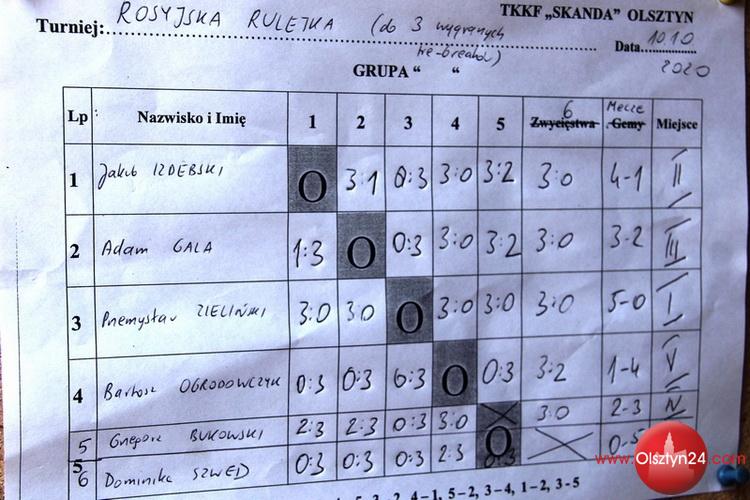 TKKF „SKANDA” OLSZTYN
Turniej: ROSYJSKA RULETKA (do 3 wygranych
Data 10.10
tie-breaków)
2020
GRUPA “ “
Lp Nazwisko i Imię 1 2 3 4 5 Zwycięstwa 6 Gemy Mecze Miejsce
1 Jakub IZDEBSKI O 3:1 0:3 3:0 3:2 3:0 4-1 II
2 Adam GALA 1:3 O 0:3 3:0 3:2 3:0 3-2 III
3 Przemysław ZIELIŃSKI 3:0 3:0 O 3:0 3:0 3:0 5-0 I
4 Bartosz OGRODOWCZYK 0:3 0:3 0:3 O 0:3 3:2 1-4 V
5 Grzegorz BUKOWSKI 2:3 2:3 0:3 3:0 3:0 2-3 IV
5 6 Dominika SZWED 0:3 0:3 0:3 2:3 O 0:3 0-5
3-2, 4-1, 5-2, 3-4, 1-2, 3-5
www.Olsztyn24.com